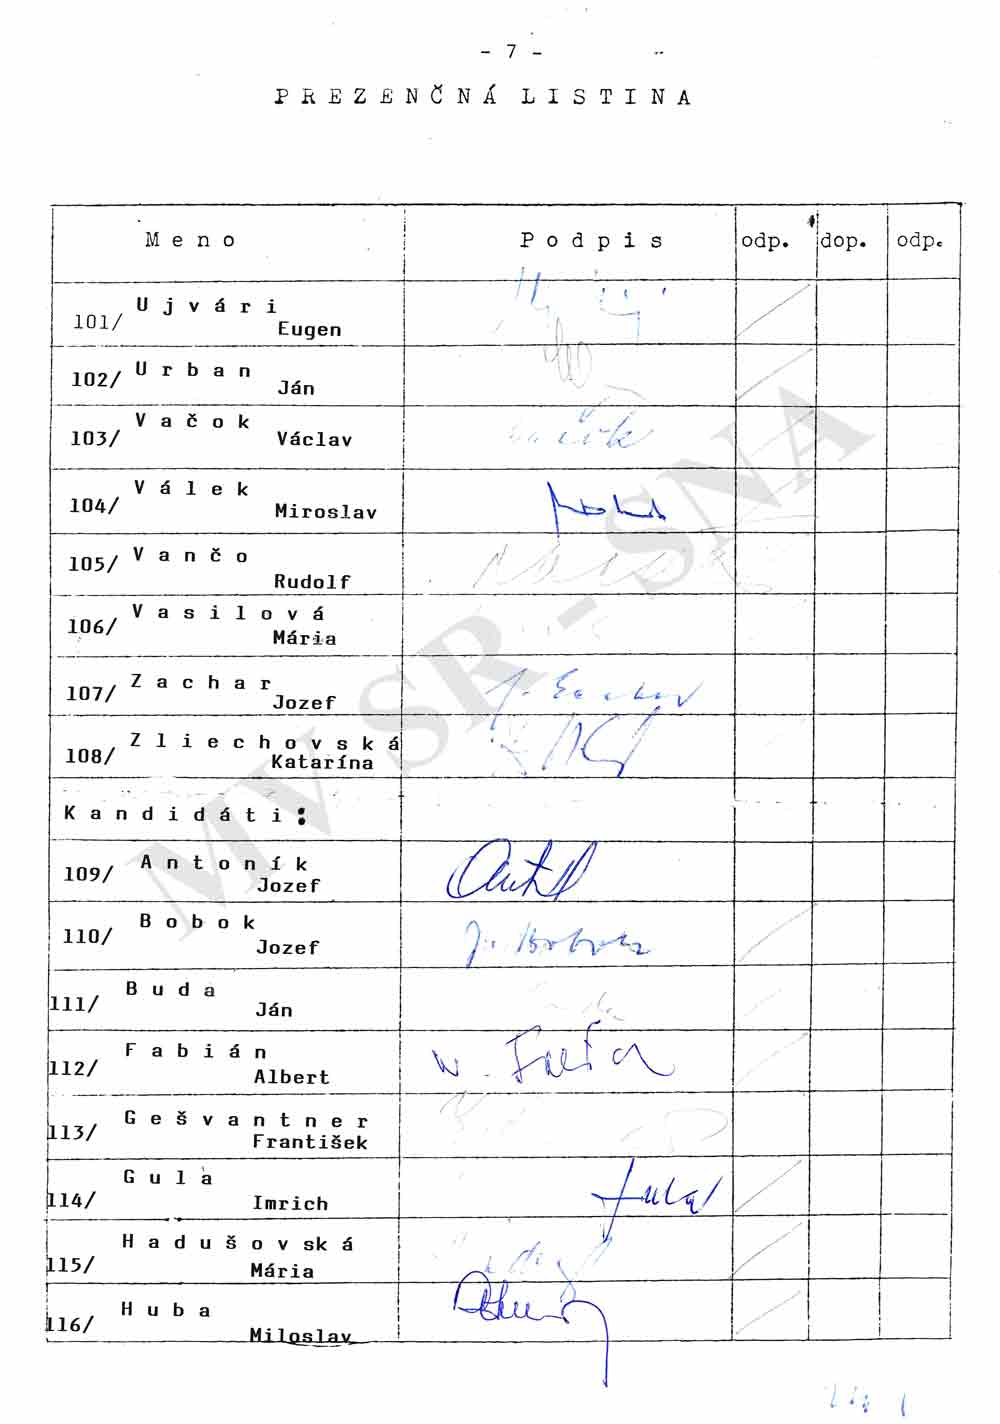 - 7 -
PREZENČNÁ LISTINA
Meno Podpis odp. dop. odp.
101/ Ujvári
Eugen
102/ Urban
Ján
103/ Vačok
Václav
104/ Válek
Miroslav
105/ Vančo
Rudolf
106/ Vasilová
Mária
107/ Zachar
Jozef
108/ Zliechovská
Katarína
Kandidáti:
109/ Antoník
Jozef
110/ Bobok
Jozef
J. Bobok
111/ Buda
Ján
112/ Fabián
Albert
113/ Gešvantner
František
114/ Gula
Imrich
115/ Hadušovská
Mária
116/ Huba
Miloslav
MV SR - SNA